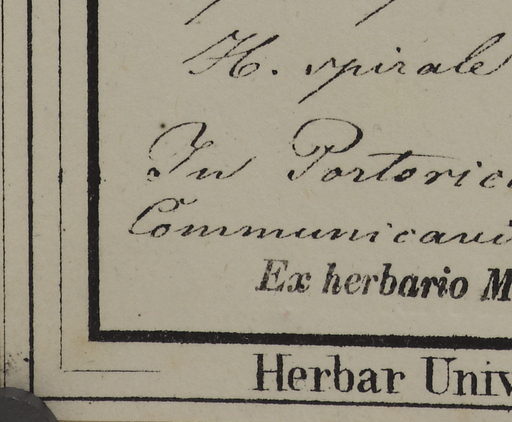 H. spirale
In Portoric
Communicavi
Ex herbario M
Herbar Univ